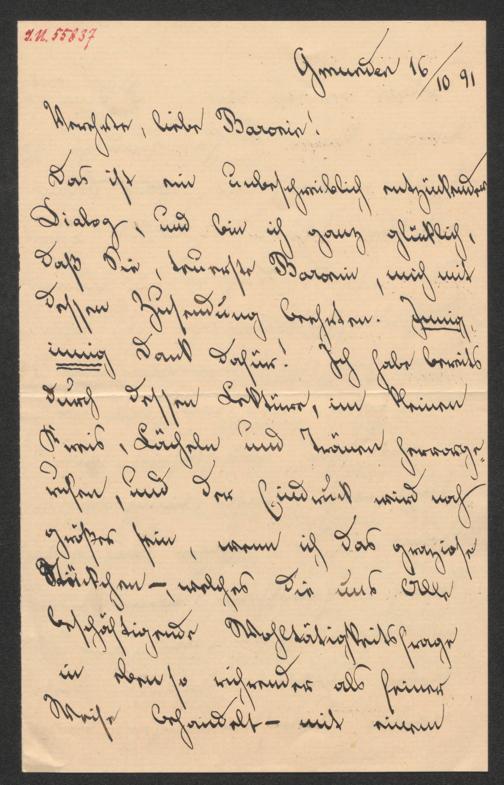 I.N. 55837
Gmunden 16/10 91
Verehrte, liebe Baronin!
Das ist ein unbeschreiblich entzückender
Dialog, und bin ich ganz glücklich,
daß Sie, teuerste Baronin, mich mit
dessen Zusendung beehrten. Innig,
innig Dank dafür! Ich habe bereits
durch dessen Lektüre, im kleinen
Kreis, Lächeln und Tränen hervorge-
rufen, und der Eindruck wird noch
größer sein, wenn ich das graziose
Stückchen –, welches die uns Alle
beschäftigende Wohltätigkeitsfrage
in ebenso rührender als feiner
Weise behandelt – mit einem